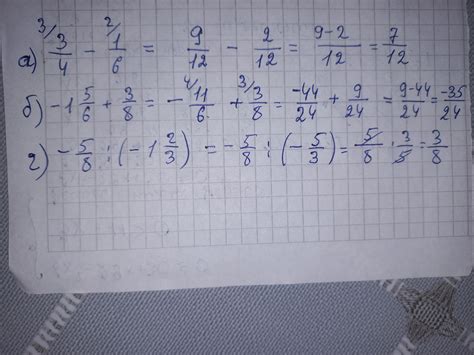 а) ³⁄3/4 - ²⁄1/6 = 9/12 - 2/12 = 9-2/12 = 7/12
б) -1 5/6 + 3/8 = - ⁴⁄11/6 + ³⁄3/8 = -44/24 + 9/24 = 9-44/24 = -35/24
г) - 5/8 : (-1 2/3) = - 5/8 : (- 5/3) = 5/8 · 3/5 = 3/8